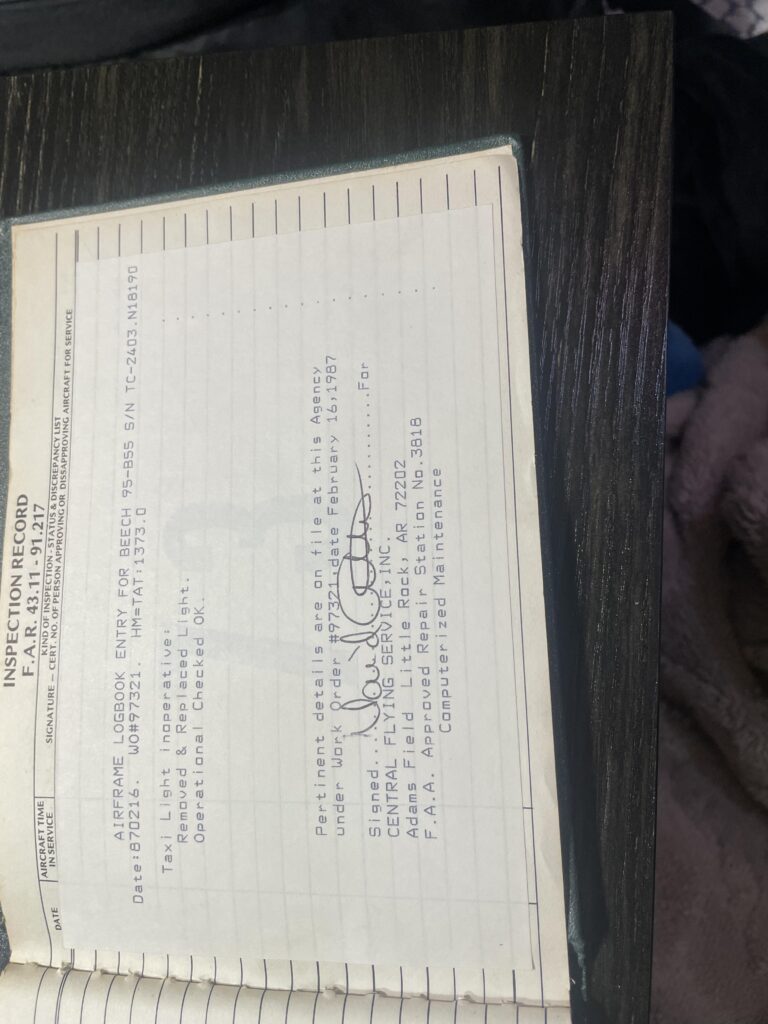 INSPECTION RECORD
F.A.R. 43.11 - 91.217
DATE
AIRCRAFT TIME
IN SERVICE
KIND OF INSPECTION - STATUS & DISCREPANCY LIST
SIGNATURE — CERT. NO. OF PERSON APPROVING OR DISSAPPROVING AIRCRAFT FOR SERVICE
AIRFRAME LOGBOOK ENTRY FOR BEECH 95-B55 S/N TC-2403.N18190
Date:870216. WO#97321. HM=TAT:1373.0
Taxi Light inoperative:
Removed & Replaced Light.
Operational Checked OK.
Pertinent details are on file at this Agency
under Work Order #97321,date February 16,1987
Signed...David..........For
CENTRAL FLYING SERVICE,INC.
Adams Field Little Rock, AR 72202
F.A.A. Approved Repair Station No.3818
Computerized Maintenance